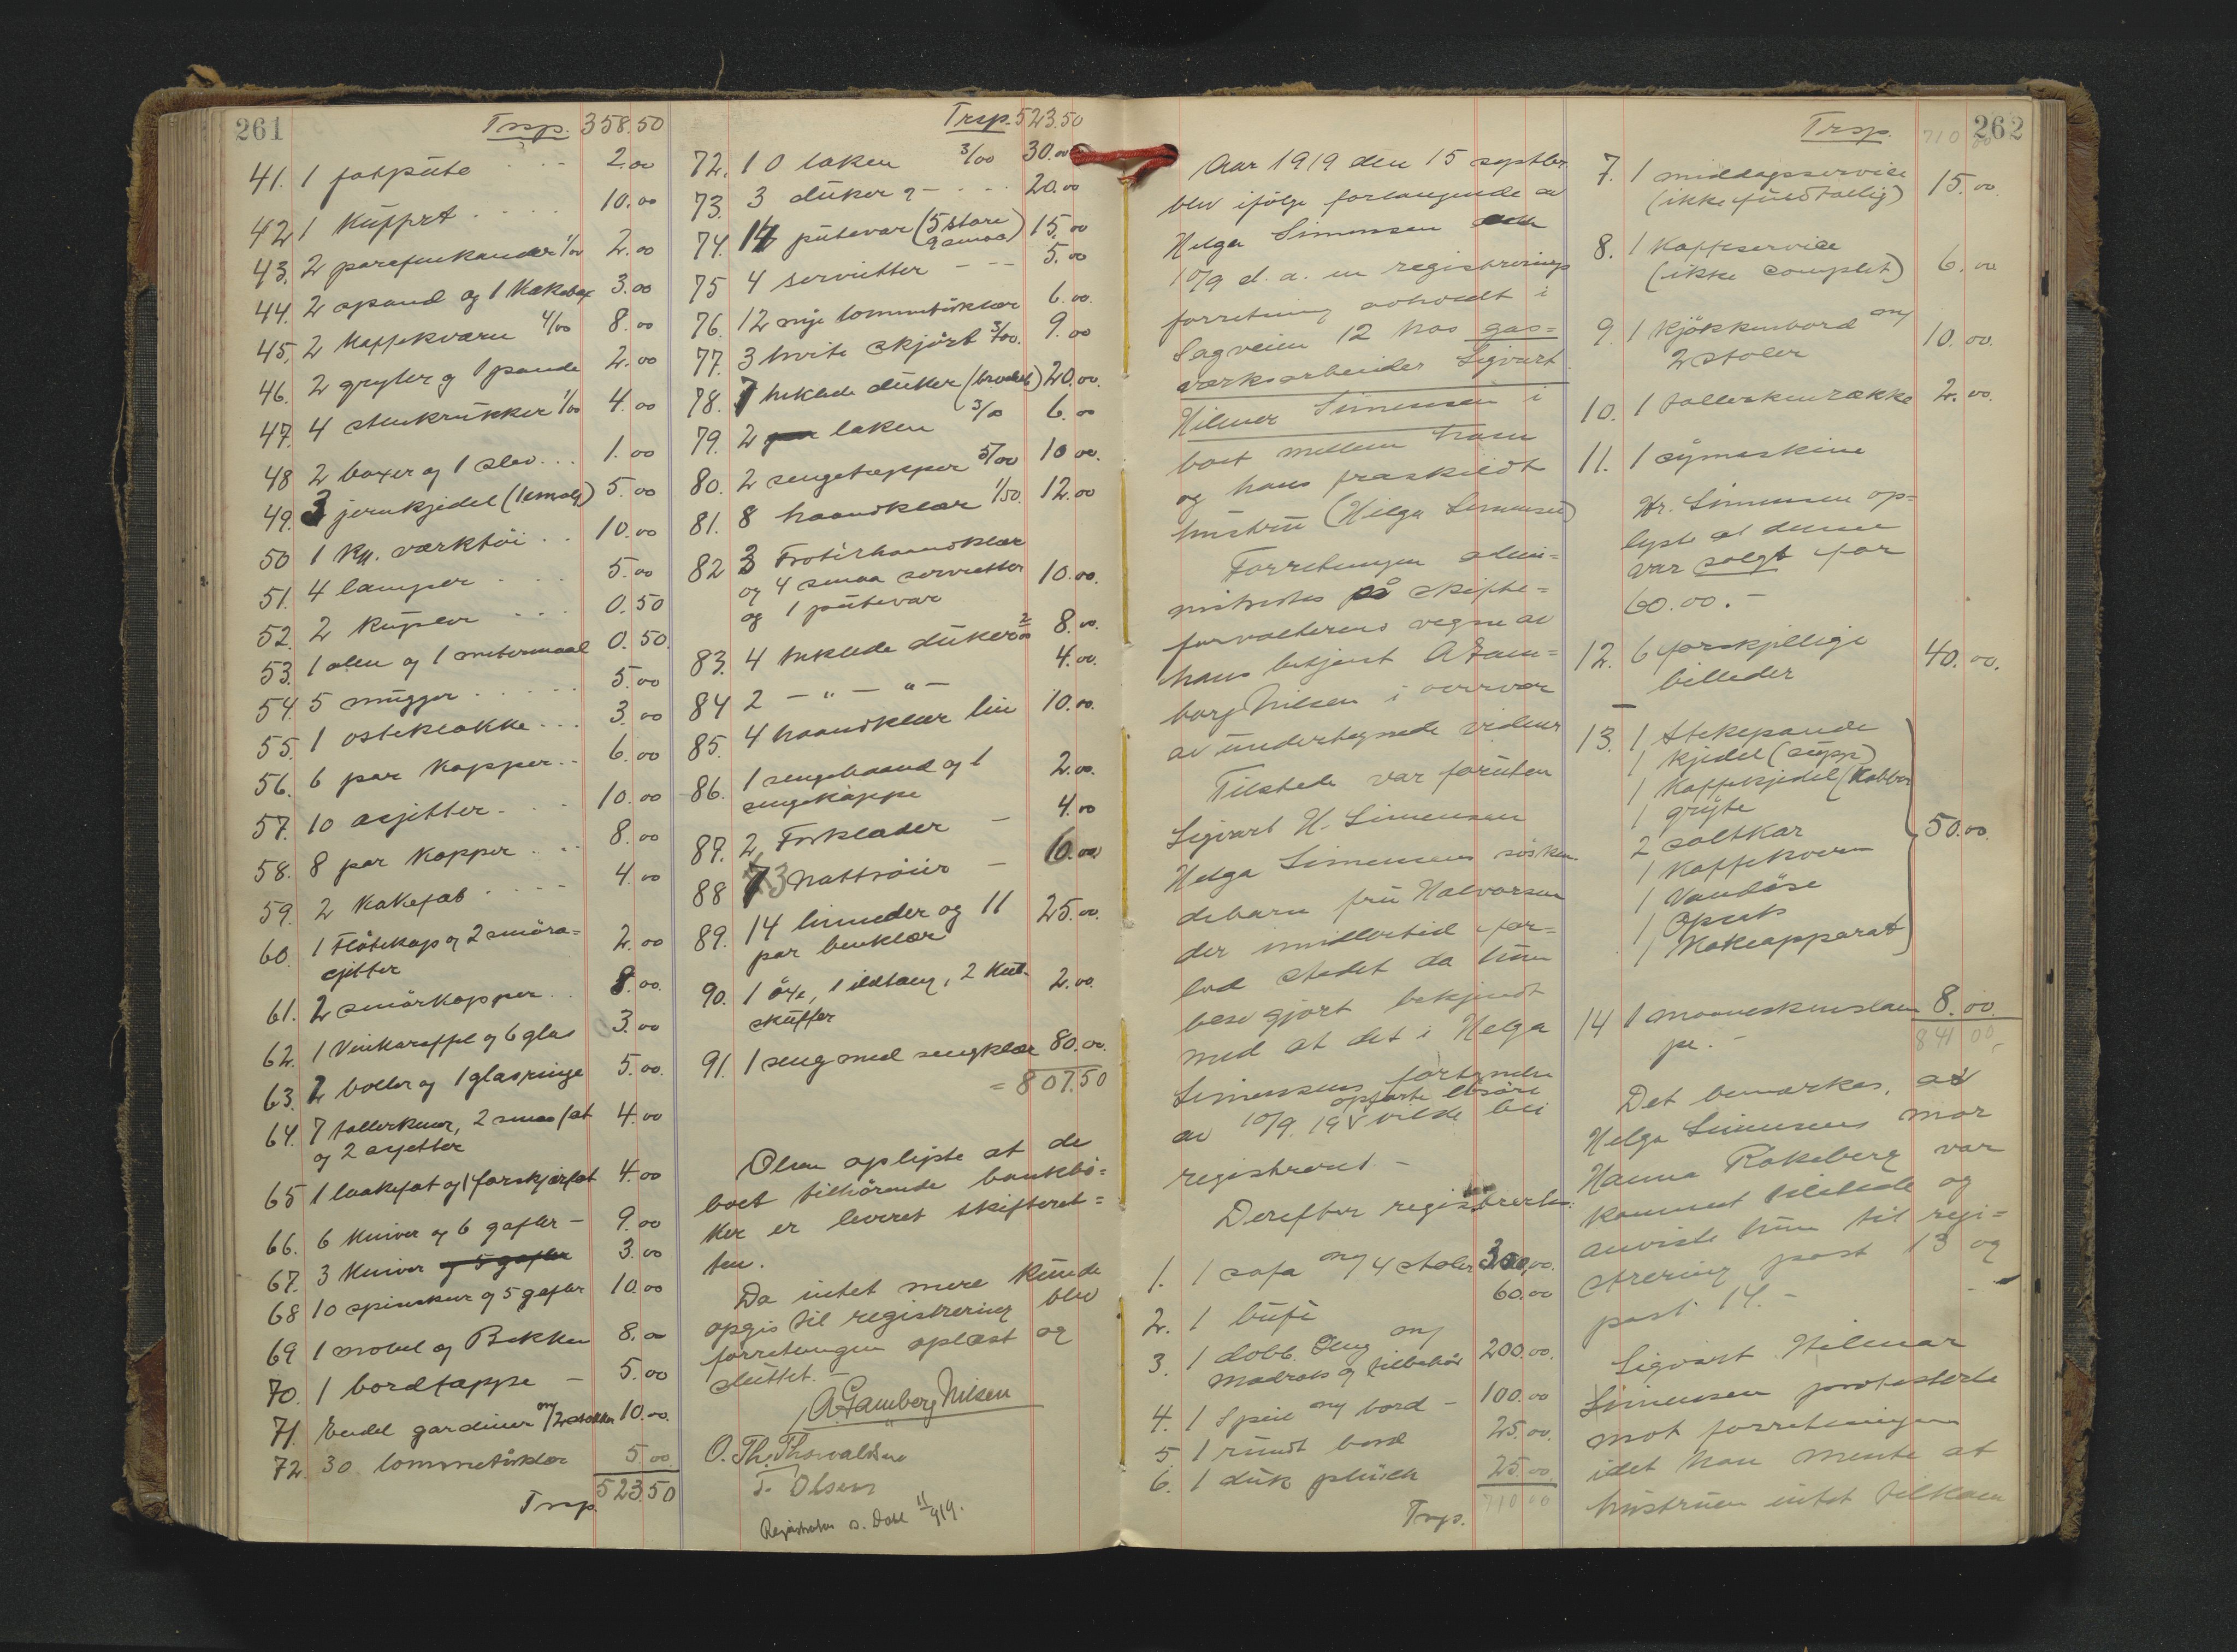 261
Trsp. 358.50
41. 1 fotpute 2.00
42. 1 Kuffert 10.00
43. 2 parafinkander 1/00 2.00
44. 2 spand og 1 Kakebox 3.00
45. 2 Kaffekværn 4/00 8.00
46. 2 gryter og 1 pande 2.00
47. 4 stenkrukker 1/00 4.00
48 2 boxer og 1 slev 1.00
49. 3 jernkjedel (1 emalj) 5.00
50 1 Kg. værktøi 10.00
51. 4 lamper 5.00
52. 2 Kupler 0.50
53. 1 alen og 1 metermaal 0.50
54. 5 mugger 5.00
55. 1 osteklokke 3.00
56. 6 par Kopper 6.00
57. 10 asjetter 10.00
58. 8 par Kopper 8.00
59. 2 Kakefat 4.00
60. 1 Fløtekop og 2 smøra=
sjetter 2.00
61. 2 smørkopper 8.00
62. 1 Vinkaraffel og 6 glas 3.00
63. 2 boller og 1 glasringe 5.00
64. 7 tallerkner, 2 smaa fat 4.00
og 2 asjetter
65 1 laakefat og 1 forskjærfat 4.00
66. 6 Kniver og 6 gafler 9.00
67. 3 Kniver og 5 gafler 3.00
68 10 spiseskeer og 5 gafler 10.00
69 1 Bekken 8.00
70. 1 bordtæppe 5.00
71. Endel gardiner m/ 2 stokker 10.00
72. 30 lommetørklær 5.00
Trsp. 523.50
Trsp. 523.50
72. 10 laken 3/00 30.00
73. 3 duker 20.00
74. 14 putevar (5 store 15.00
9 smaa)
75 4 servietter 5.00
76. 12 nye lommetørklær 6.00
77. 3 hvite skjørt 3/00. 9.00
78. 7 heklede duker (brodert) 20.00.
79. 2 laken 3/00 6.00
80. 2 sengetæpper 5/00 10.00.
81. 8 haandklær 1/50. 12.00
82 3 Frotérhaandklær
og 4 smaa servietter 10.00.
og 1 putevar
83. 4 heklede duker 2/00 8.00.
84 2 - " - " - 4.00.
85. 4 haandklær lin 10.00.
86. 1 sengebaand og 1
sengekappe 2.00.
87. 2 Forklæder 4.00
88 3 Nattrøier 6.00
89. 14 linneder og 11
par benklær 25.00.
90. 1 øxe, 1 ildtang, 2 Kul-
skuffer 2.00.
91. 1 seng med sengklær 80.00.
= 807.50
Olsen oplyste at de
boet tilhørende bankbø=
ker er leveret skifteret=
ten.
Da intet mere kunde
opgis til registrering blev
forretningen oplæst og
sluttet. -
A Gamborg Nilsen
O. Th. Thorvaldsen
T. Olsen
Registrator D. Dahl 11/9 19.
262
Aar 1919 den 15 septbr.
blev ifølge forlangende av
Helga Simensen
10/9 d. a. en registrerings
forretning avholdt i
Sagveien 12 hos gas=
værksarbeider Sigvart
Hilmar Simensen i
boet mellem ham
og hans fraskildt
hustru (Helga Simensen)
Forretningen admi=
nistrertes på skifte=
forvalterens vegne av
hans betjent A Gam=
borg Nilsen i overvær
av undertegnede vidner
Tilstede var foruten
Sigvart H. Simensen
Helga Simensens søsken
debarn fru Halvorsen
der imidlertid for=
lod stedet da hun
blev gjort bekjendt
med at det i Helga
Simensens fortegnelse
opførte løsøre
av 10/9. 19 vilde bli
registreret. -
Derefter registrertes:
1. 1 sofa m/ 4 stoler 300.00.
2. 1 bufé 60.00
3. 1 dobb. seng m/
madrass og tilbehør 200.00.
4. 1 Speil m/ bord - 100.00
5. 1 rundt bord 25.00.
6. 1 duk plüsch 25.00
Trsp. 710.00
Trsp. 710 00
7. 1 middagsservice
(ikke fuldtallig) 15.00.
8. 1 Kaffeservice
(ikke complet) 6.00
9. 1 Kjøkkenbord m/
2 stoler 10.00.
10. 1 tallerkenrække 2.00.
11. 1 symaskine
Hr. Simensen op=
lyste at denne
var solgt for
60.00. -
12. 6 forskjellige
billeder 40.00.
13. 1 Stekepande
1 Kjedel (supp)
1 Kaffekjedel (Kobber
1 gryte
2 saltkar
1 Kaffekvern
1 Vandøse
1 Kokeapparat
50.00
14 1 maaneskinslam 8.00.
pe. -
841 00
Det bemærkes, at
Helga Simensens mor
Hanna Rakeberg var
kommet tilstede og
anviste hun til regi=
strering post 13 og
post 14. -
Sigvart Hilmar
Simensen protesterte
mot forretningen
idet han mente at
hustruen intet tilkom